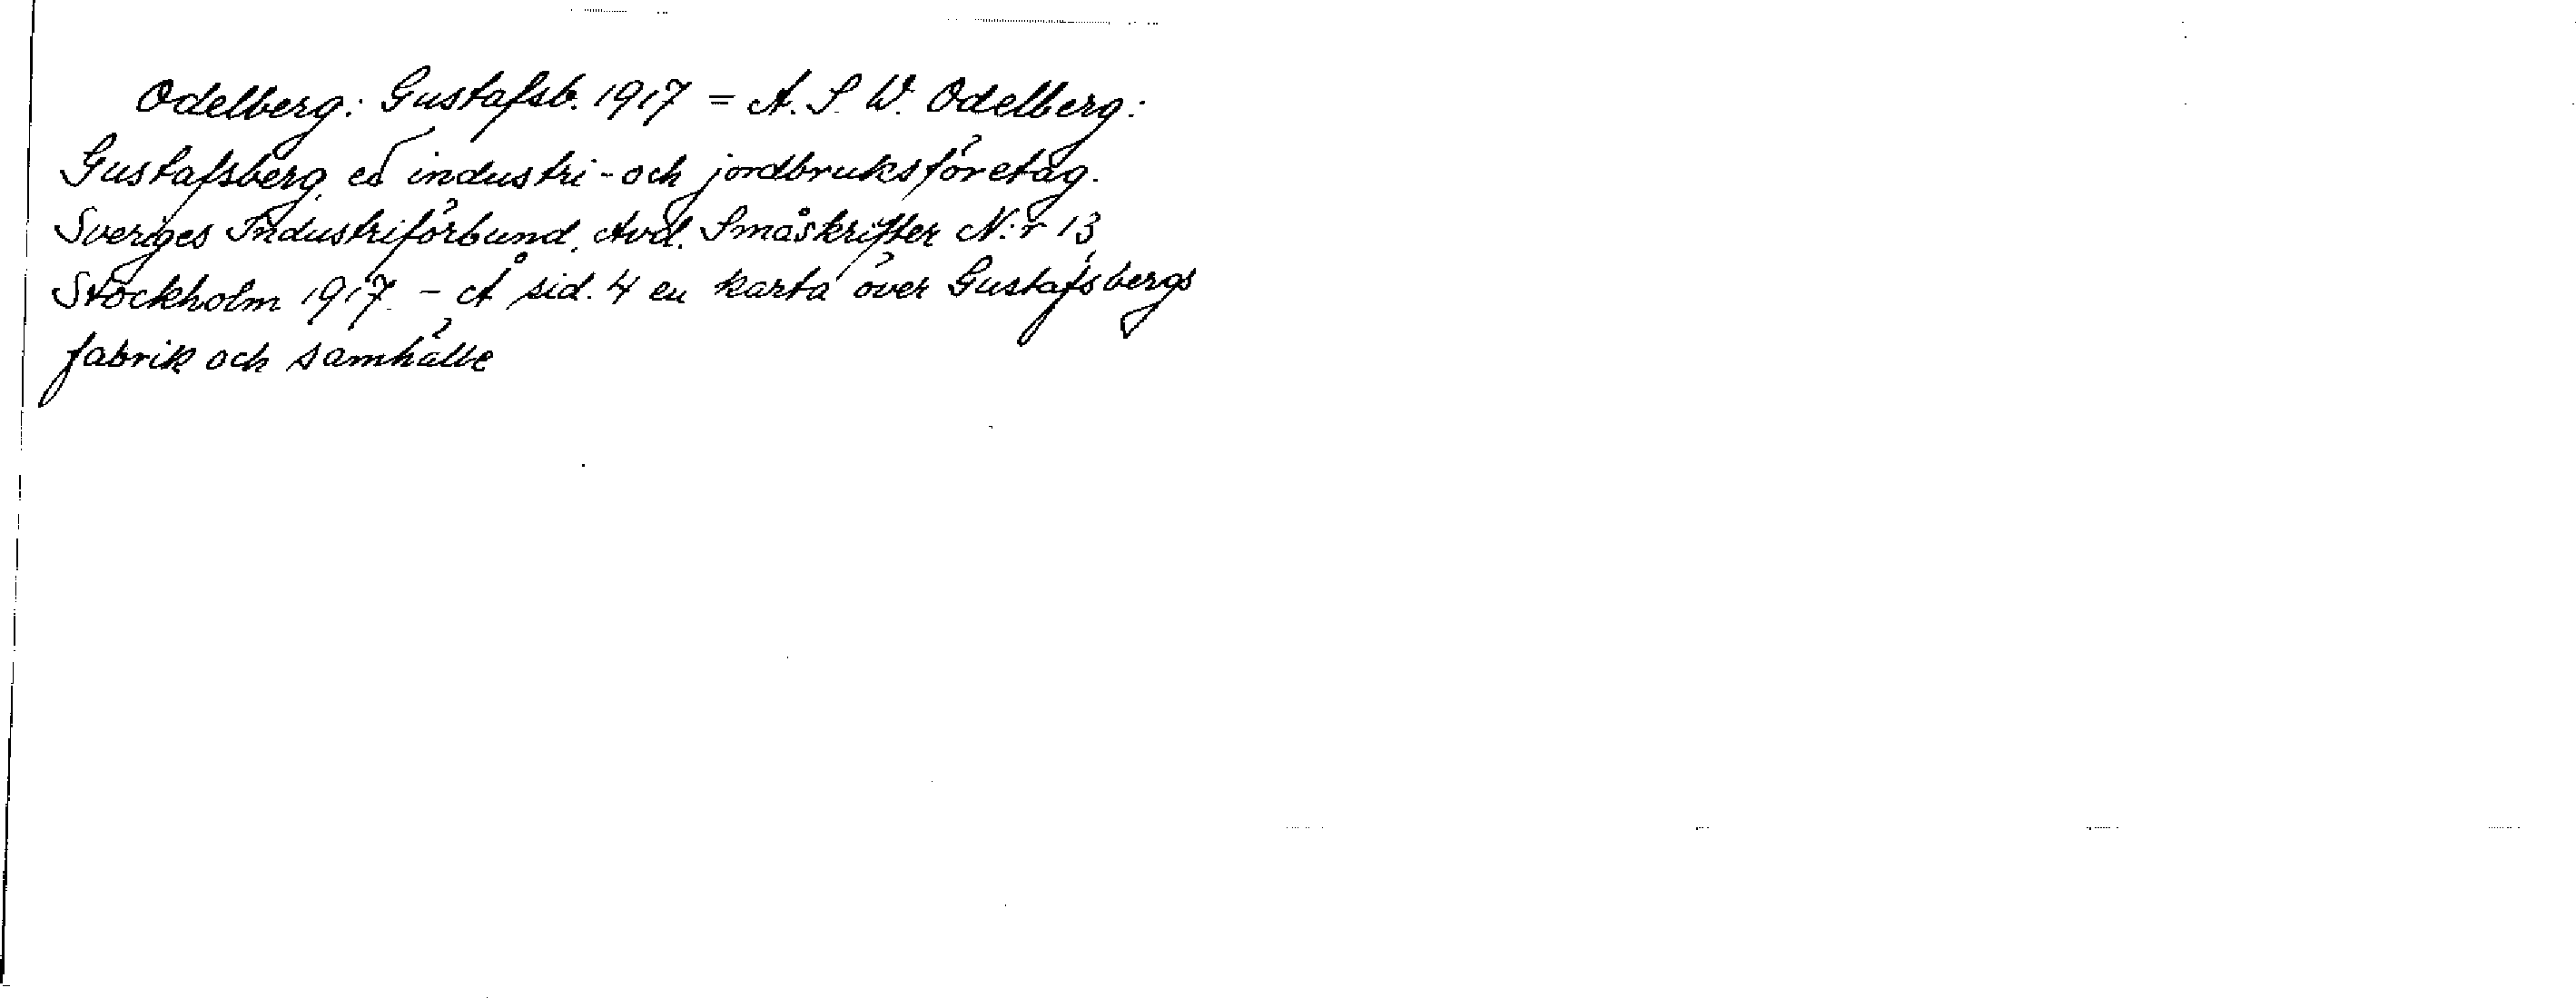 Odelberg: Gustafsb. 1917 = A. S. W. Odelberg:
Gustafsberg ett industri- och jordbruksföretag.
Sveriges Industriförbund. Avd. Småskrifter N:r 13
Stockholm 1917. - Å sid. 4 en karta över Gustafsbergs
fabrik och samhälle